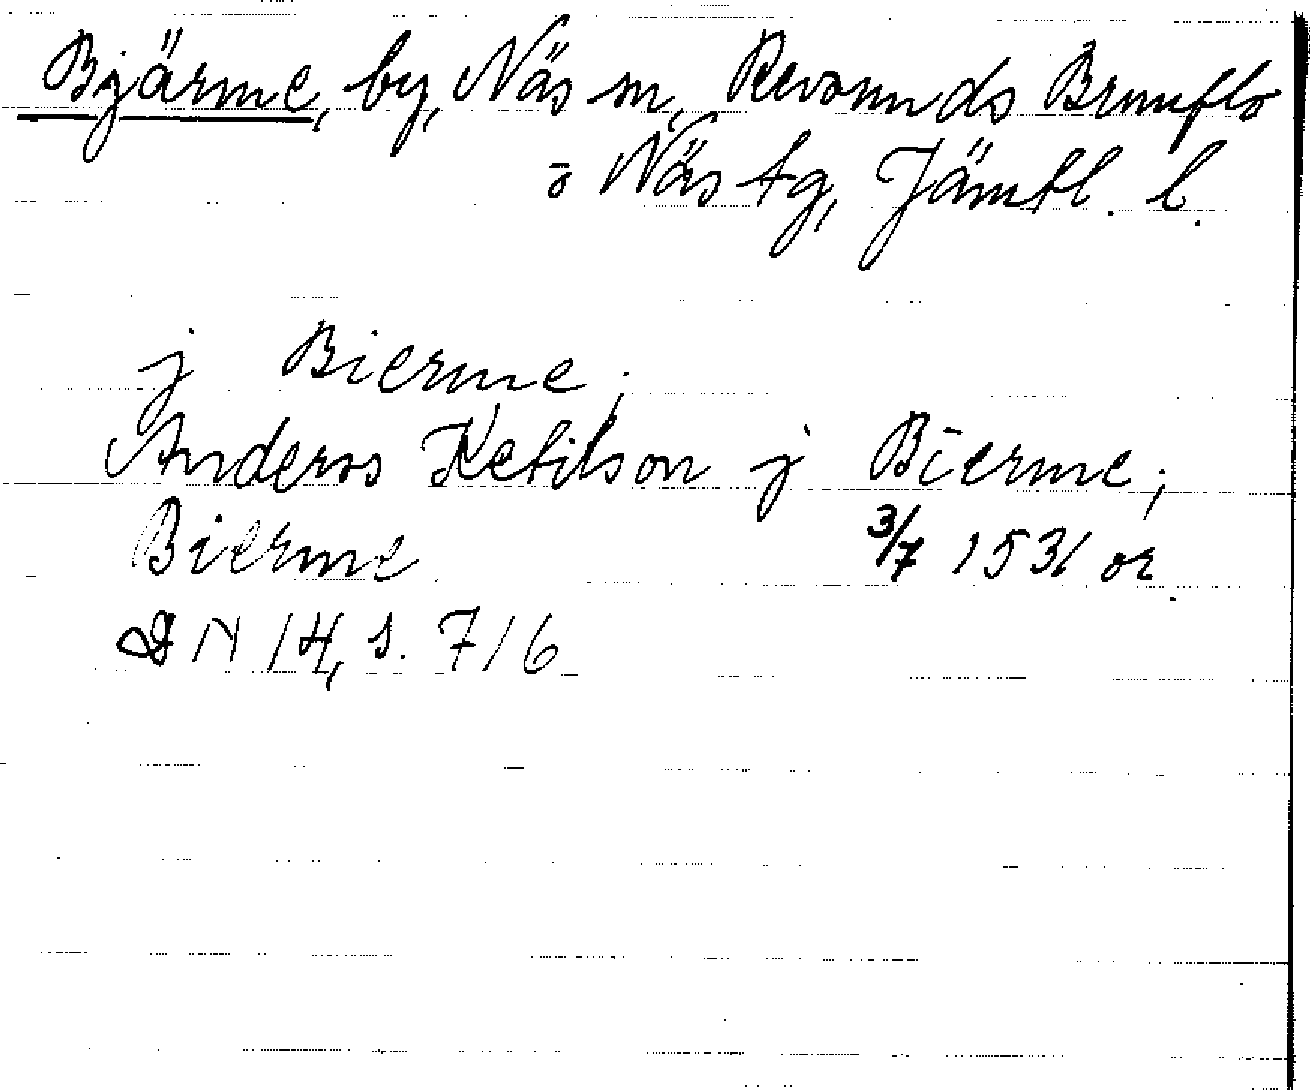 Bjärme, by, Näs sn, Revsunds Brunflo
o Näs tg, Jämtl. l.
j Bierme;
Anders Ketilson j Bierme;
Bierme 3/7 1531 or.
DN 14, s. 716